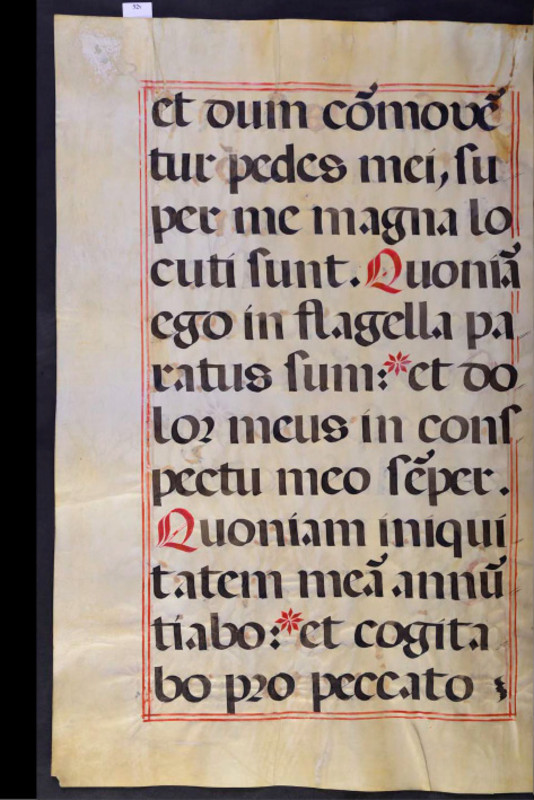 et dum cõmovẽ
tur pedes mei, ſu
per me magna lo
cuti ſunt. Quoniã
ego in flagella pa
ratus ſum:* et do
lor meus in conſ
pectu meo ſẽper.
Quoniam iniqui
tatem meã annũ
tiabo:* et cogita
bo pro peccato